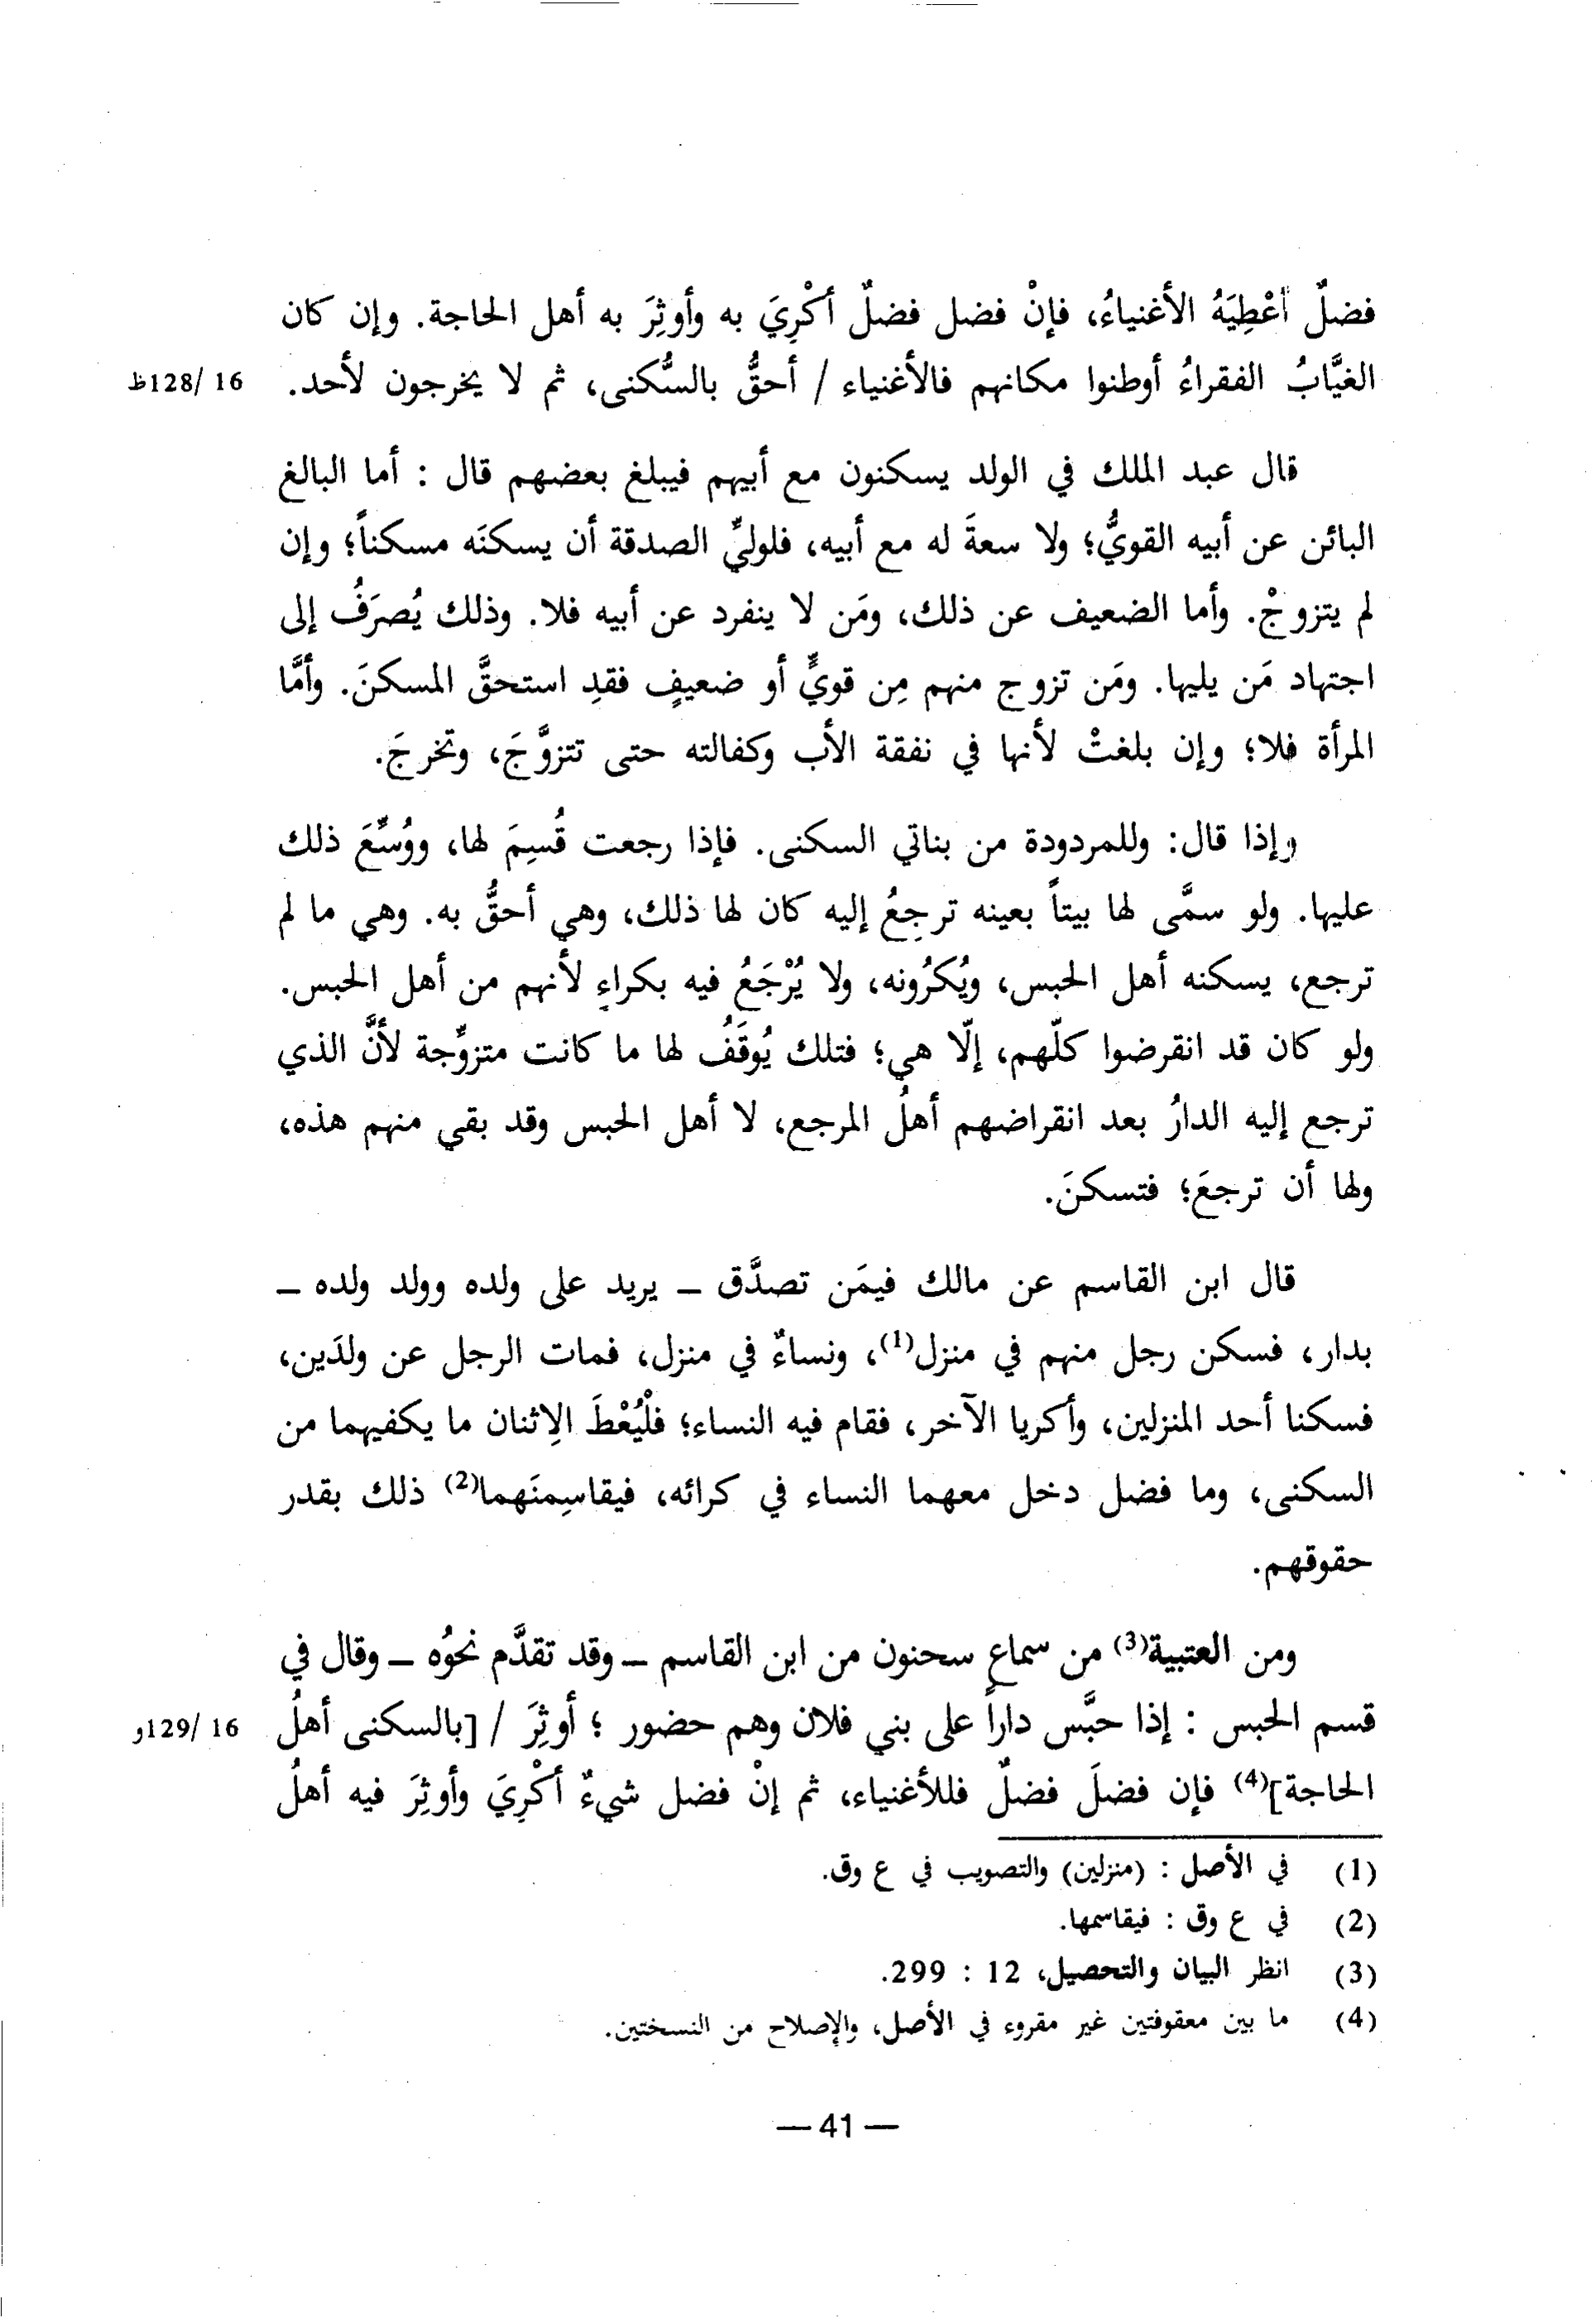 فضلٌ أُعْطِيَهُ الأغنياءُ، فإنْ فضل فضلٌ أكْرِيَ به وأوثِرَ به أهل الحاجة. وإن كان
الغيَّابُ الفقراءُ أوطنوا مكانهم فالأغنياء / أحقُّ بالسُّكنى، ثم لا يخرجون لأحد.
16 /128ظ
قال عبد الملك في الولد يسكنون مع أبيهم فيبلغ بعضهم قال : أما البالغ
البائن عن أبيه القويُّ؛ ولا سعةَ له مع أبيه، فلوليِّ الصدقة أن يسكنَه مسكناً؛ وإن
لم يتزوجْ. وأما الضعيف عن ذلك، ومَن لا ينفرد عن أبيه فلا. وذلك يُصرَفُ إلى
اجتهاد مَن يليها. ومَن تزوج منهم مِن قويٍّ أو ضعيفٍ فقدِ استحقَّ المسكنَ. وأمَّا
المرأة فلا؛ وإن بلغتْ لأنها في نفقة الأب وكفالته حتى تتزوَّجَ، وتخرجَ.
وإذا قال: وللمردودة من بناتي السكنى. فإذا رجعت قُسِمَ لها، ووُسِّعَ ذلك
عليها. ولو سمَّى لها بيتاً بعينه ترجِعُ إليه كان لها ذلك، وهي أحقُّ به. وهي ما لم
ترجع، يسكنه أهل الحبس، ويُكرُونه، ولا يُرْجَعُ فيه بكراءٍ لأنهم من أهل الحبس.
ولو كان قد انقرضوا كلّهم، إلّا هي؛ فتلك يُوقَفُ لها ما كانت متزوِّجة لأنَّ الذي
ترجع إليه الدارُ بعد انقراضهم أهلُ المرجع، لا أهل الحبس وقد بقي منهم هذه،
ولها أن ترجعَ؛ فتسكنَ.
قال ابن القاسم عن مالك فيمَن تصدَّق – يريد على ولده وولد ولده –
بدار، فسكن رجل منهم في منزل(1)، ونساءٌ في منزل، فمات الرجل عن ولدَين،
فسكنا أحد المنزلين، وأكريا الآخر، فقام فيه النساء؛ فلْيُعْطَ الإثنان ما يكفيهما من
السكنى، وما فضل دخل معهما النساء في كرائه، فيقاسِمنَهما(2) ذلك بقدر
حقوقهم.
ومن العتبية(3) من سماع سحنون من ابن القاسم – وقد تقدَّم نحوُه – وقال في
قسم الحبس : إذا حبَّس داراً على بني فلان وهم حضور ؛ أوثِرَ / [بالسكنى أهلُ
16 /129و
الحاجة](4) فإن فضلَ فضلٌ فللأغنياء، ثم إنْ فضل شيءٌ أكْرِيَ وأوثِرَ فيه أهلُ
(1) في الأصل : (منزلين) والتصويب في ع وق.
(2) في ع وق : فيقاسمها.
(3) انظر البيان والتحصيل، 12 : 299.
(4) ما بين معقوفتين غير مقروء في الأصل، والإصلاح من النسختين.
— 41 —